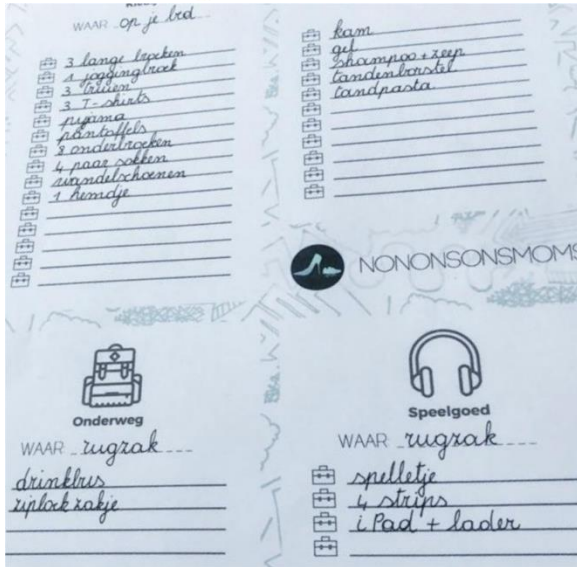 WAAR op je bed
3 lange broeken
1 joggingbroek
3 truien
3 T-shirts
pyjama
pantoffels
8 onderbroeken
4 paar sokken
wandelschoenen
1 hemdje
kam
gel
shampoo + zeep
tandenborstel
tandpasta
NONONSONSMOMS
Onderweg
WAAR rugzak
drinkbus
ziplock zakje
Speelgoed
WAAR rugzak
spelletje
4 strips
iPad + lader